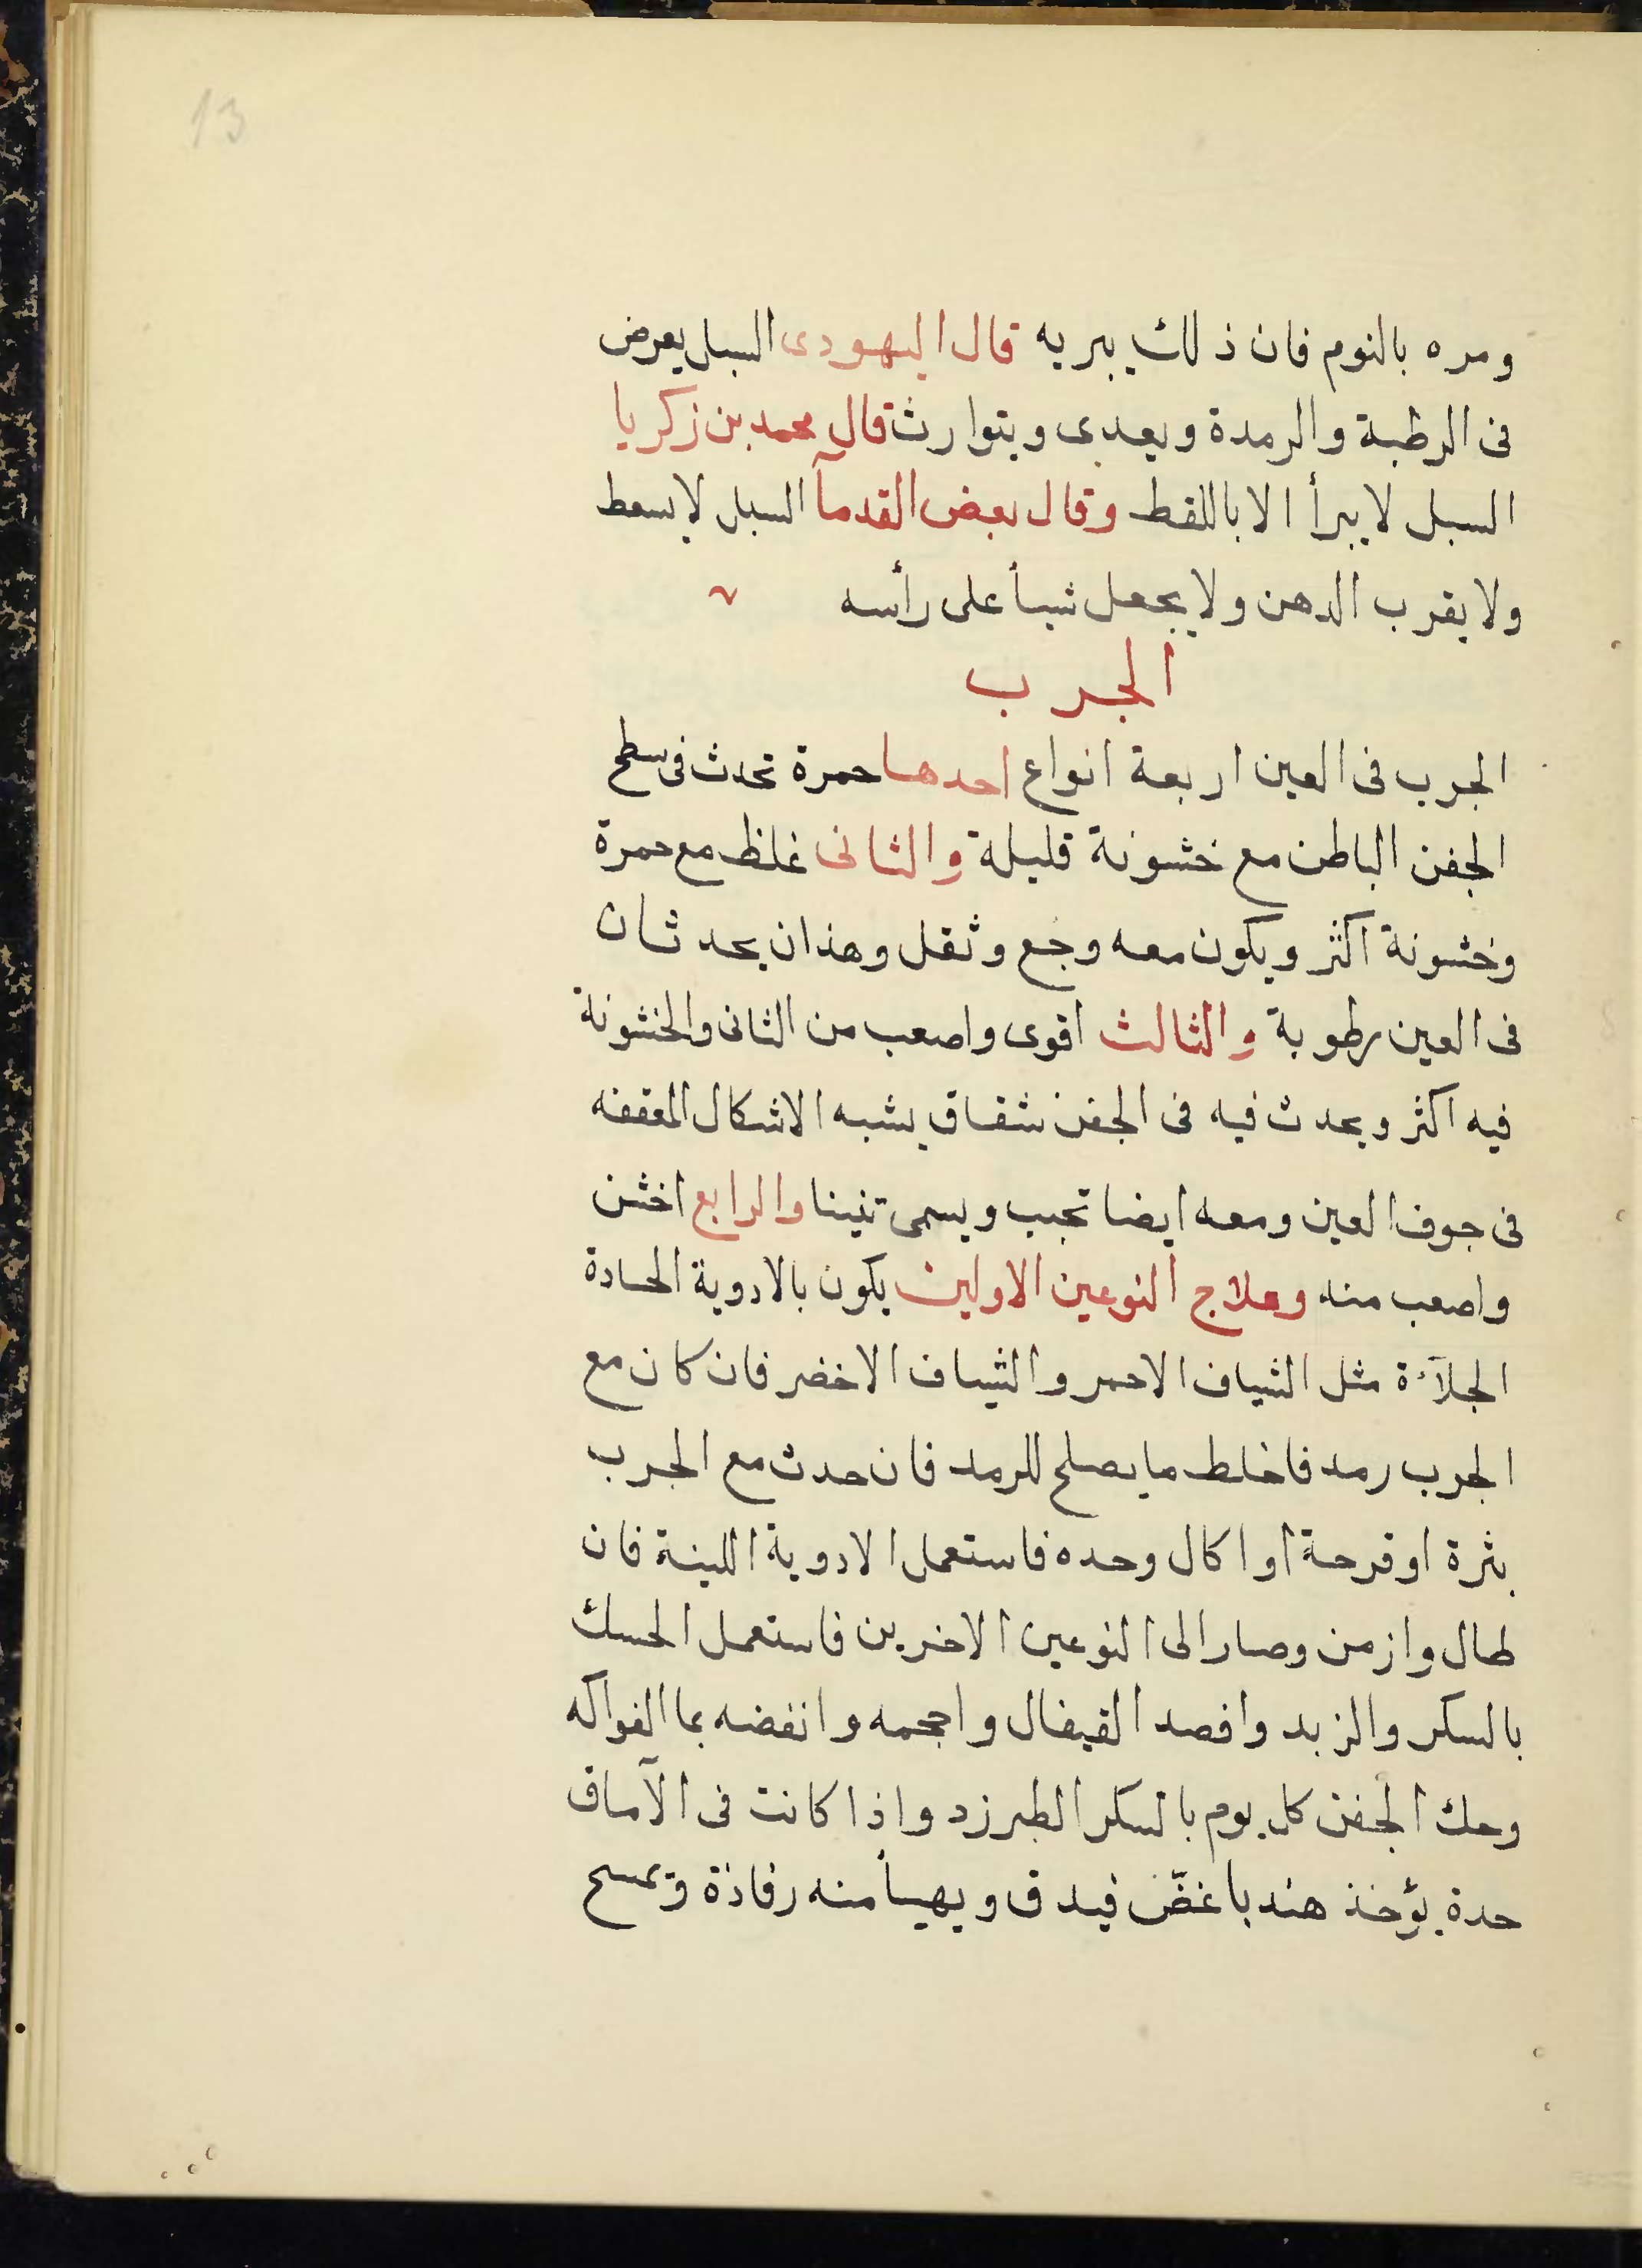 13
ومره بالنوم فان ذلك يبريه قال اليهودى السبل يعرض
فى الرطبة والرمدة ويعدى ويتوارث قال محمد بن زكريا
السبل لا يبرأ الا باللقط وقال بعض القدمآ السبل لا يسعط
ولا يقرب الدهن ولا يجعل شيأ على رأسه
الجرب
الجرب فى العين اربعة انواع احدها حمرة تحدث فى سطح
الجفن الباطن مع خشونة قليلة والثانى غلظ مع حمرة
وخشونة اكثر ويكون معه وجع وثقل وهذان يحدثان
فى العين رطوبة والثالث اقوى واصعب من الثانى والخشونة
فيه اكثر ويحدث فيه فى الجفن شقاق يشبه الاشكال المعقفه
فى جوف العين ومعه ايضا تحبب ويسمى تنينا والرابع اخشن
واصعب منه وعلاج النوعين الاولين يكون بالادوية الحادة
الجلآءة مثل الشياف الاحمر والشياف الاخضر فان كان مع
الجرب رمد فاخلط ما يصلح للرمد فان حدث مع الجرب
بثرة او قرحة او اكال وحده فاستعمل الادوية اللينة فان
طال وازمن وصار الى النوعين الاخرين فاستعمل الحسك
بالسكر والزبد وافصد القيفال واحجمه وانفضه بما الفواكه
وحك الجفن كل يوم بالسكر الطبرزد واذا كانت فى الآماق
حدة يؤخذ هندبا غضّ فيدق ويهيأ منه رفادة وتمسح